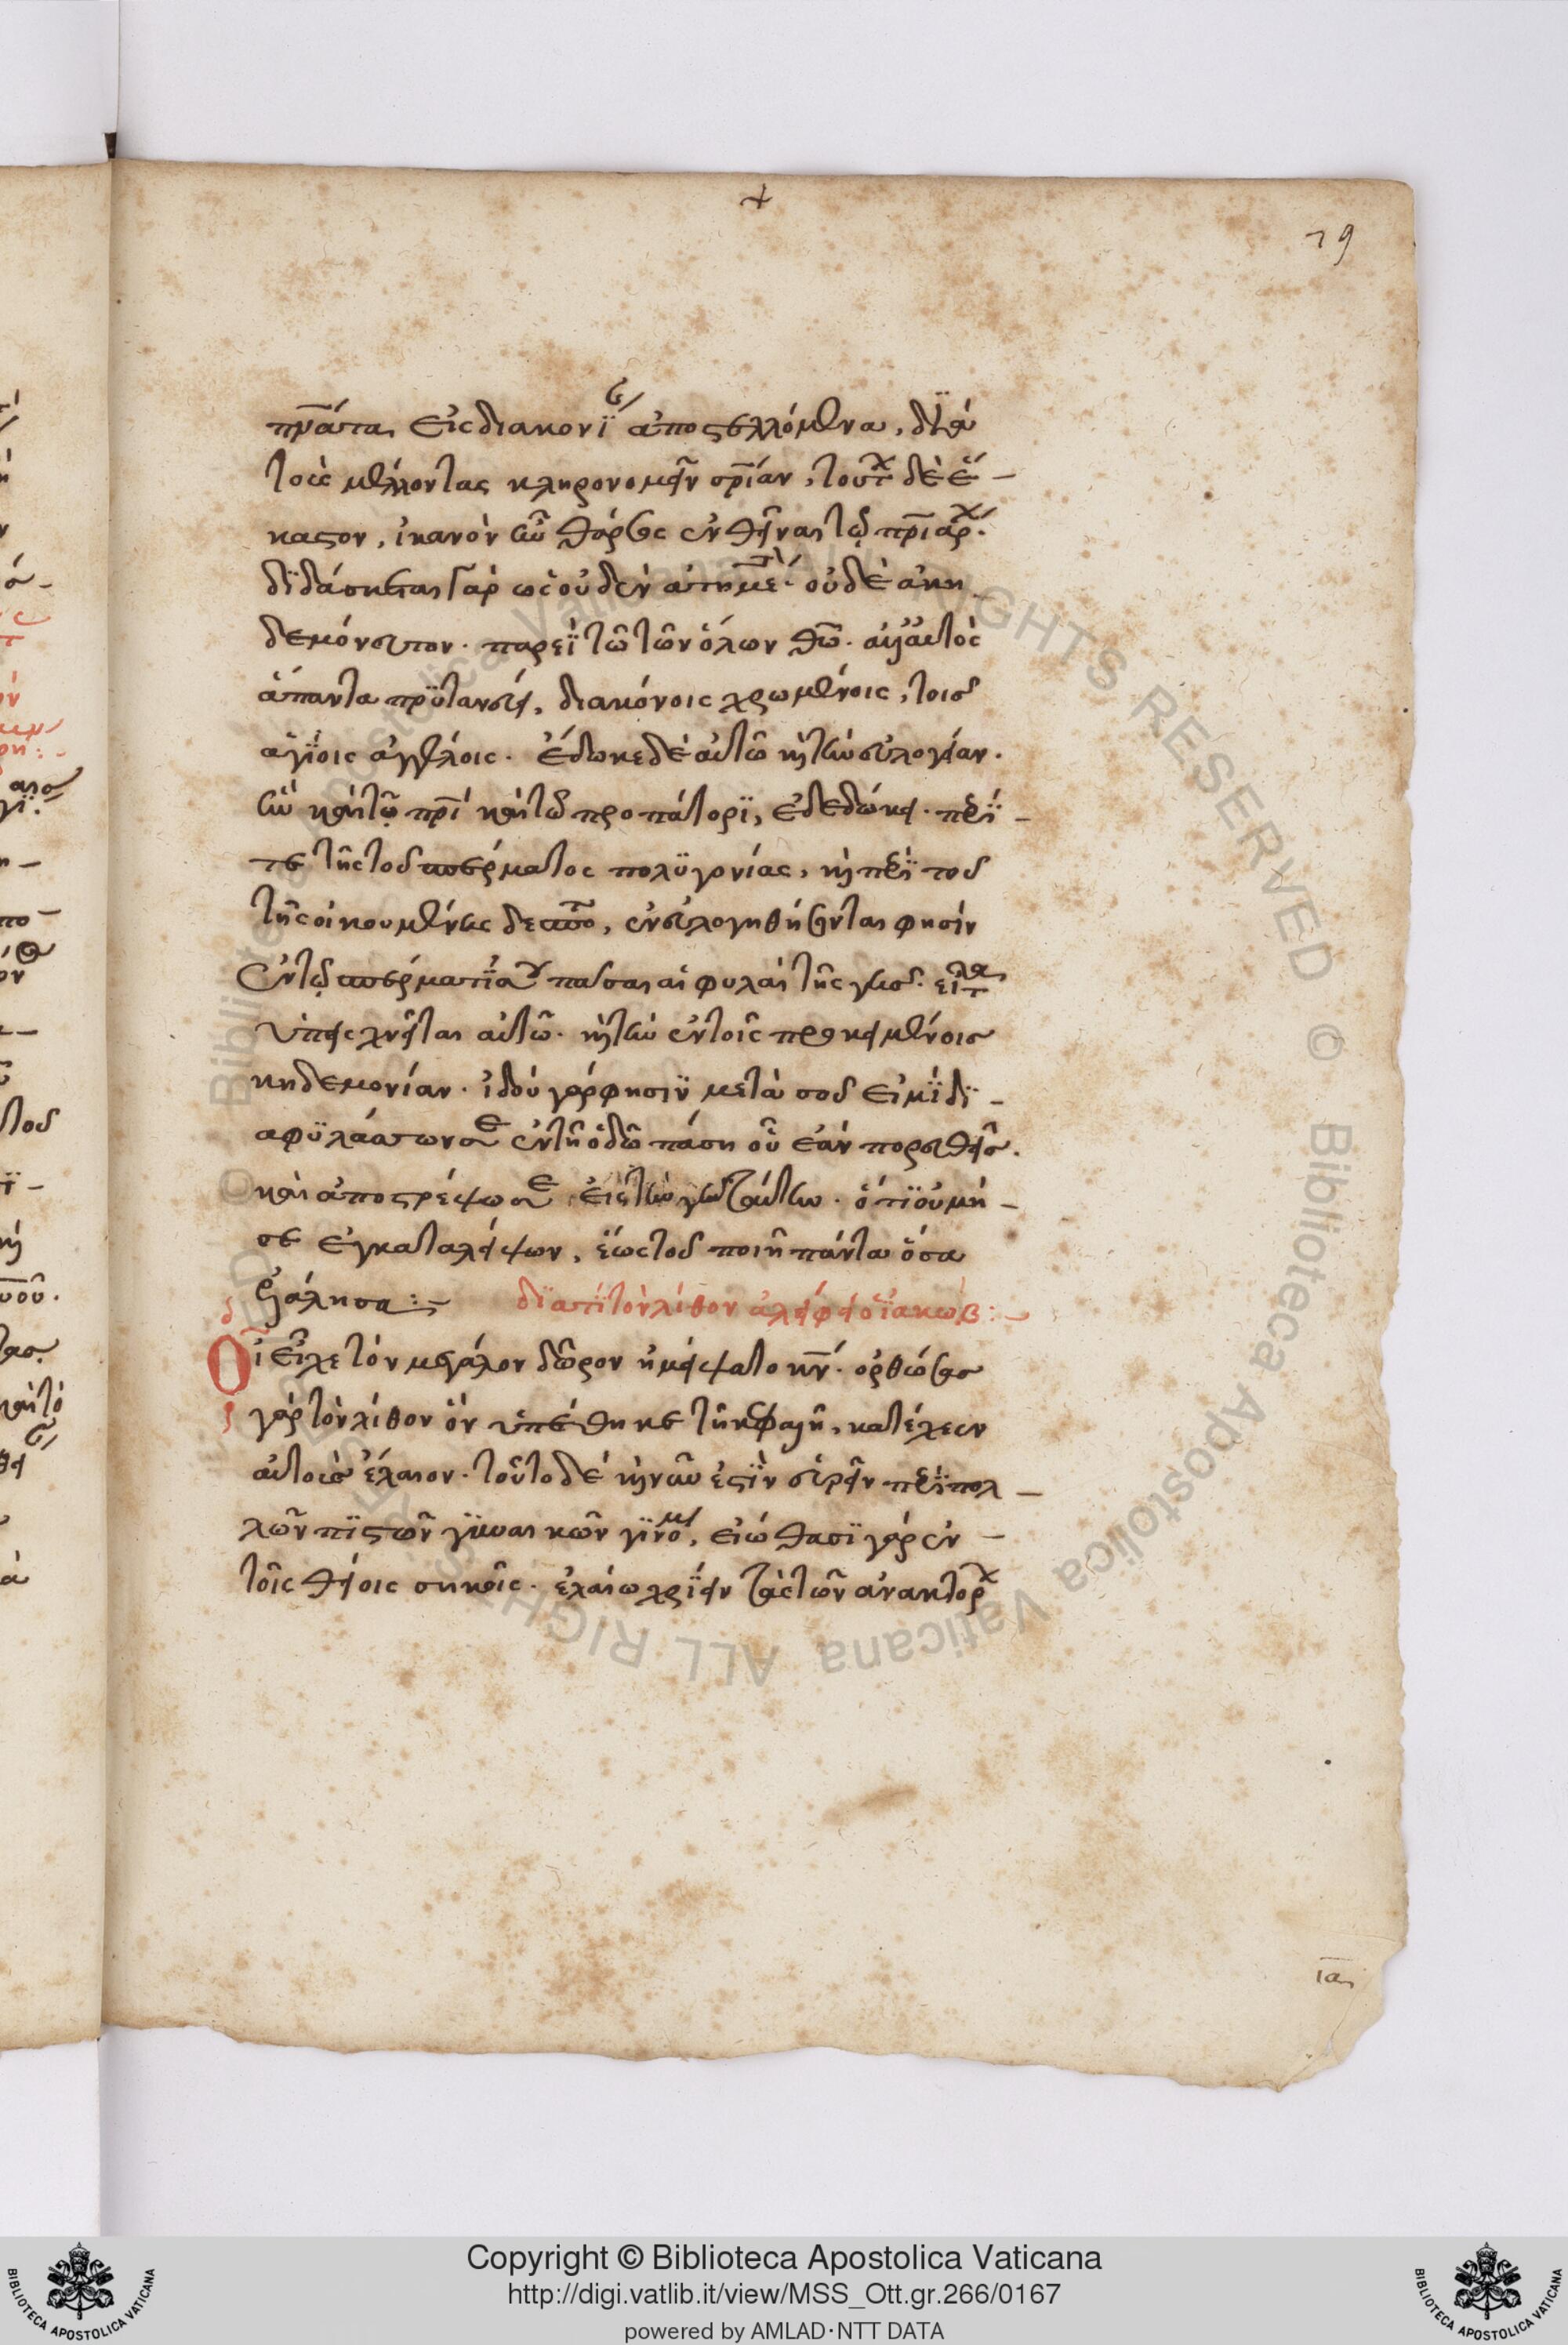 +
79
πν̅άτα, εἰς διακονϊ ἀποστελλόμενα, δϊὰ
τοὺς μέλλοντας κληρονομεῖν σρ̅ίαν, τουτ δὲ ἕ-
καστον, ἱκανὸν ἦν θάρσος ἐνθεῖναι τῷ πρ̅ιάρχ.
δϊδάσκεται γὰρ ὡς οὐδὲν ἀτημε. οὐδὲ ἀκη
δεμόνευτον. παρεῒ τῶ τῶν ὅλων θῶ. ἀλλ αὐτὸς
ἅπαντα πρϋτανεύει, διακόνοις χρώμενοις, τοισ
ἁγΐοις ἀγγέλοις. ἔδωκε δὲ αὐτῶ κὴ τὴν εὐλογίαν.
ἣν καὶ τῷ πρ̅ί καὶ τῶ προπάτορϊ, ἐδεδώκει. περϊ -
τε τῆς τοῦ σπέρματος πολϋγονίας, κὴ περϊ τοῦ
τῆς οἰκουμένης δεσπο, ἐνευλογηθήσονται φησὶν
ἐν τῷ σπέρματΐ σου πᾶσαι αἱ φυλαὶ τῆς γῆς. εἶτα
ὑπισχνεῖται αὐτῶ. κὴ τὴν ἐν τοῖς προκειμένοισ
κηδεμονίαν. ἰδοὺ γάρ φησιν μετὰ σοῦ εἰμΐ δϊ -
αφϋλάσσων σε ἐν τῆ ὁδῶ πάση οὗ ἐὰν πορευθεῖσ.
καὶ ἀποστρέψω σε εἰς τὴν γῆν ταύτην. ὅτϊ οὐ μή -
σε ἐγκαταλείψων, ἕως τοῦ ποιῆ πάντα ὅσα
ἐλάλησα :- δϊατί τὸν λίθον ἀλείφει ὁ ϊακώβ :-
Οἷ εἶχε τὸν μεγάλον δῶρον ἠμείψατο κν̅. ὀρθώσασ
γὰρ τὸν λίθον ὃν ὑπέθηκε τῆ κεφαλῆ, κατέχεεν
αὐτοῖς ἔλαιον. τοῦτο δὲ κὴ νῦν ἐστῒν εὑρεῖν περϊ πολ -
λῶν πϊστῶν γϋναικῶν γϊνο, εἰώθασϊ γὰρ ἐν -
τοῖς θείοις σηκοῖς. ἐλαίω χρΐειν τὰς τῶν ἀνακτορ
ια
Copyright © Biblioteca Apostolica Vaticana
http://digi.vatlib.it/view/MSS_Ott.gr.266/0167
powered by AMLAD·NTT DATA